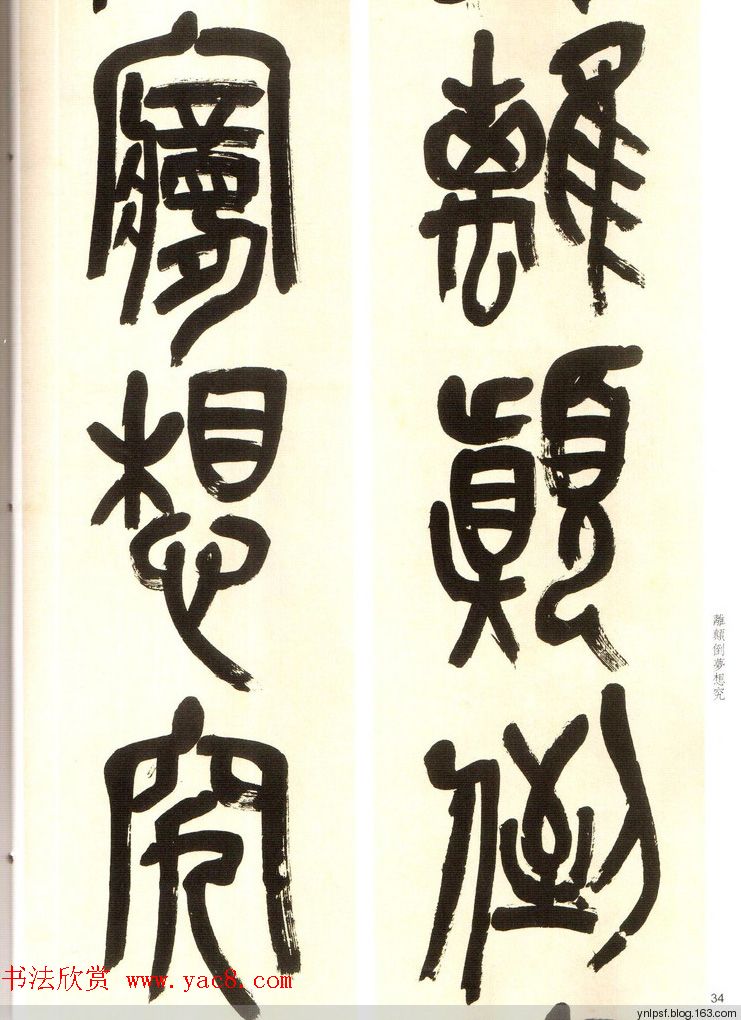 離顛倒
夢想究
離顛倒夢想究
34
书法欣赏 www.yac8.com
ynlpsf.blog.163.com